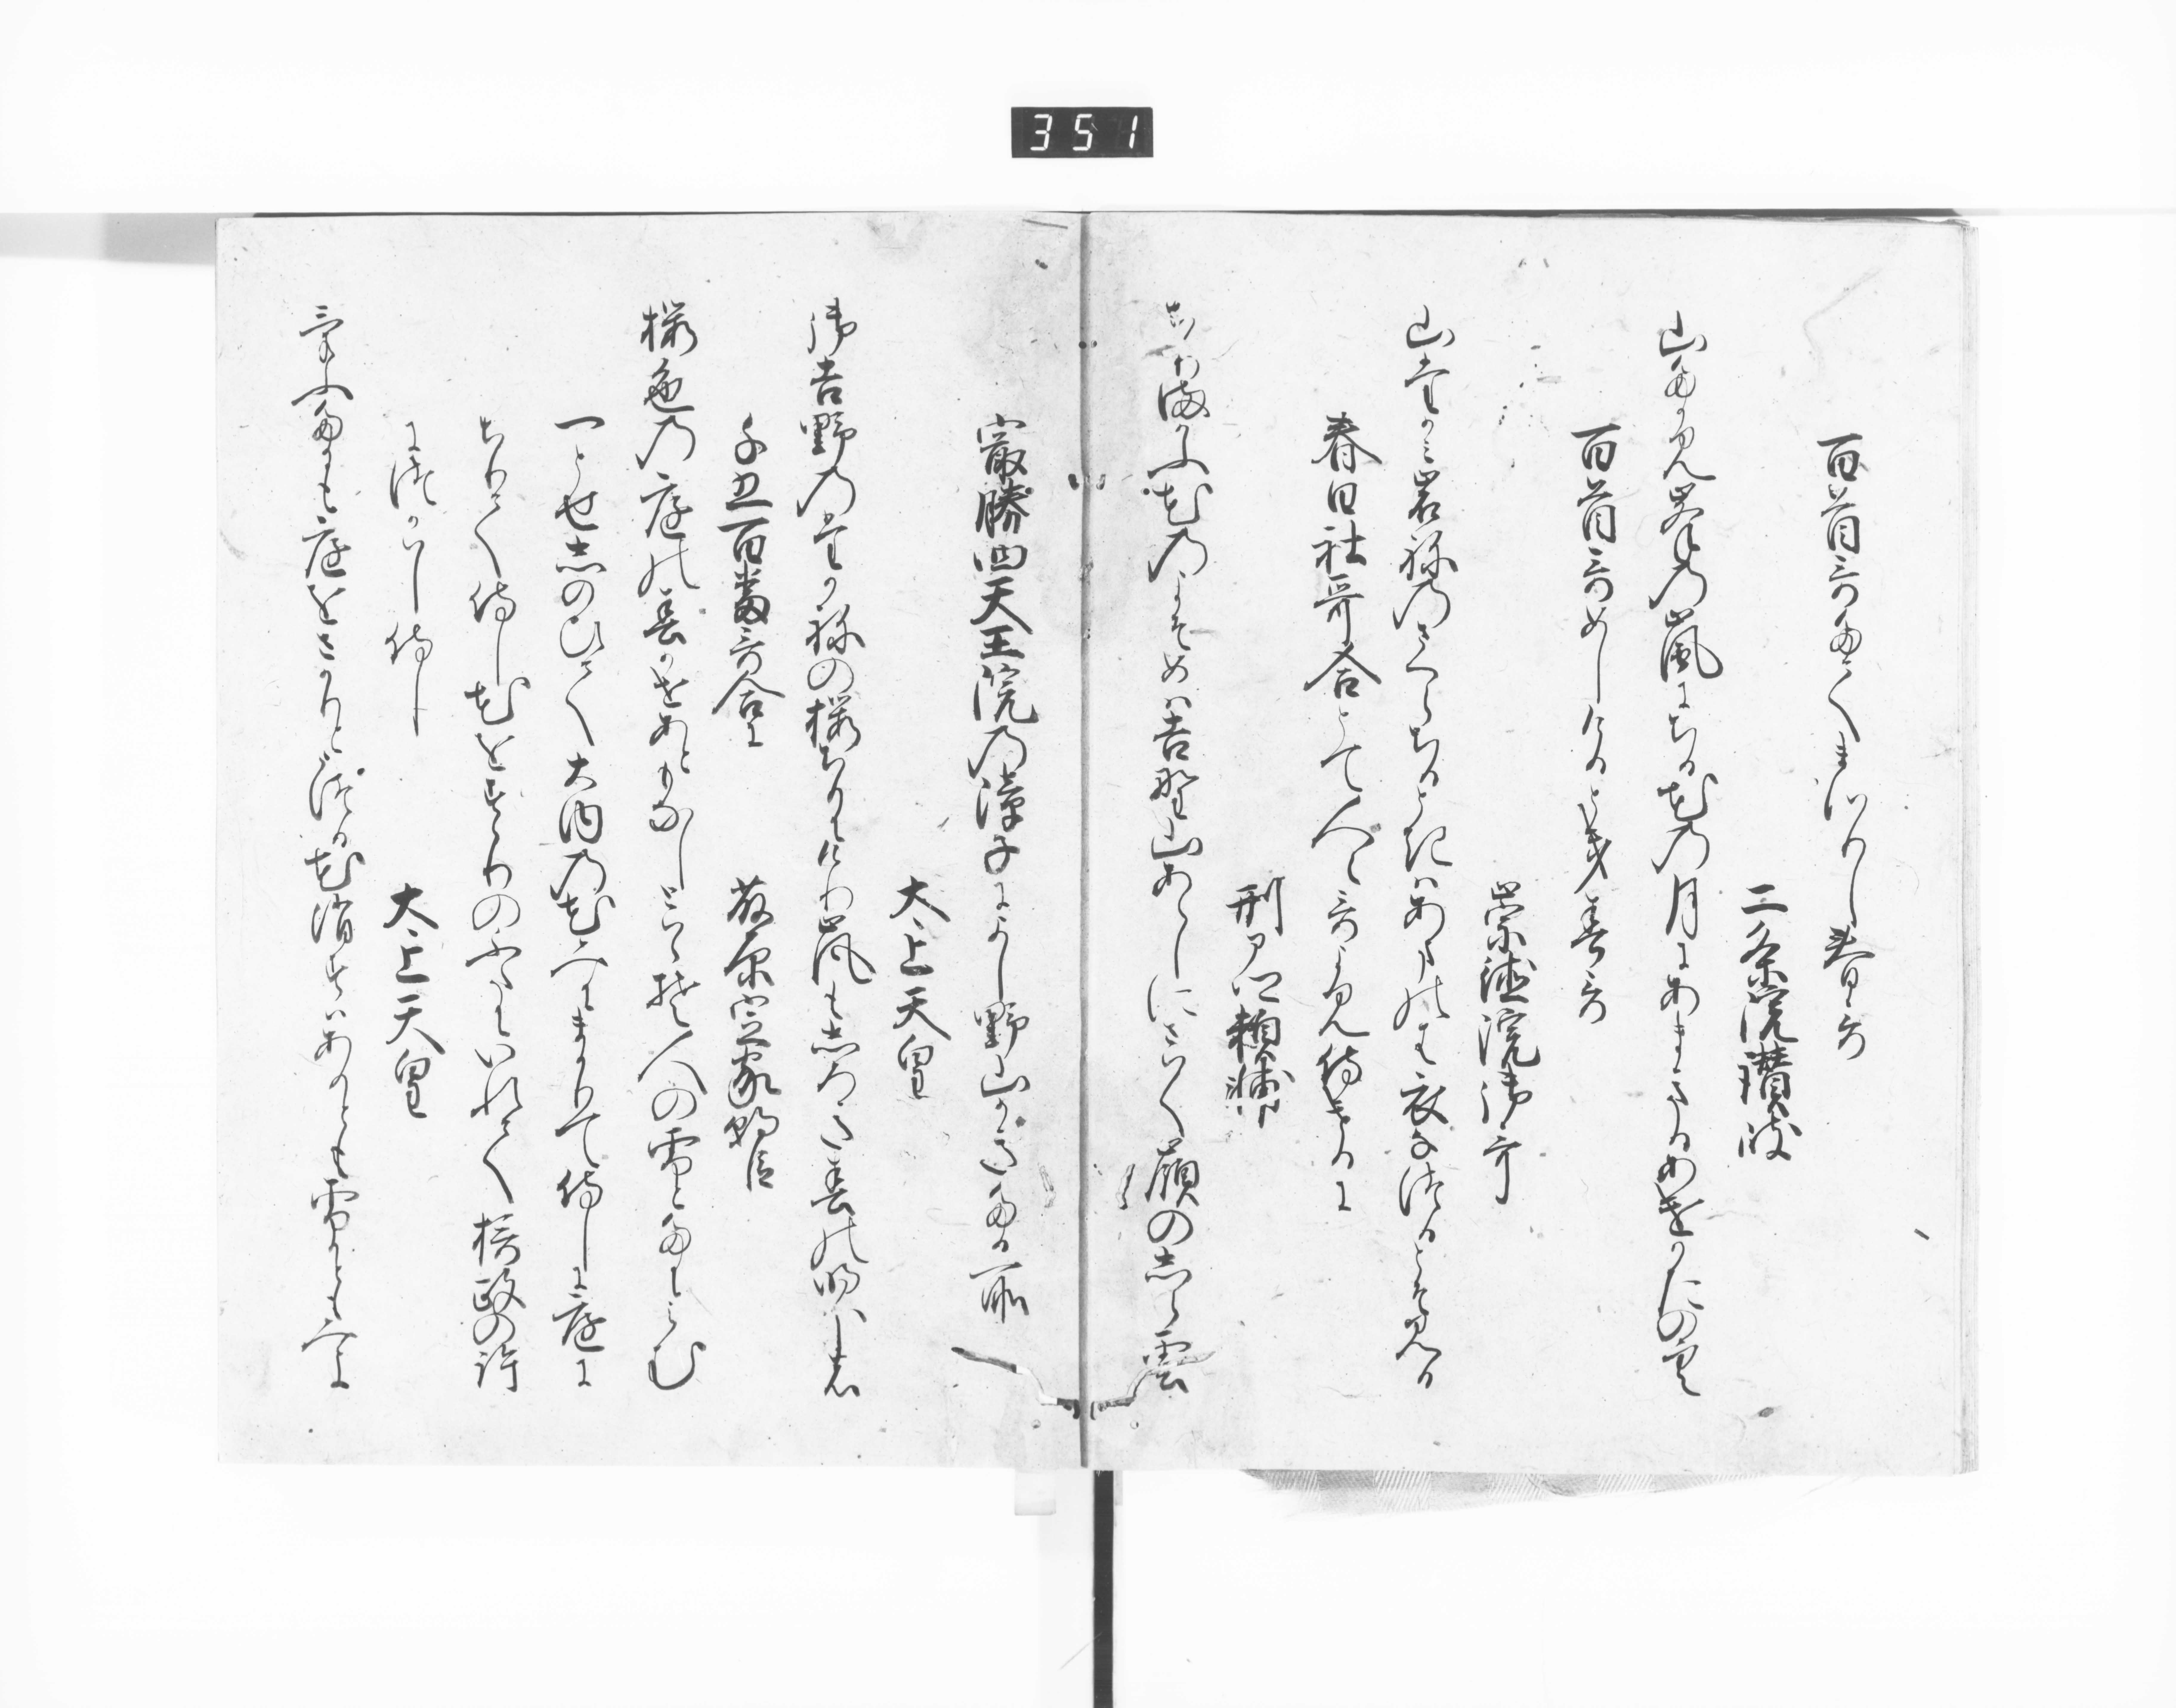 351
百首哥たてまつりし春哥
二条院讃岐
山たかみ峯の嵐にちる花の月にあまきるあけかたの空
百首哥めしける時春哥
崇徳院御哥
山たかみ岩ねのさくらちる時はあまの羽衣なつるとそ見る
春日社哥合とて人々哥よみ侍けるに
刑部卿頼輔
ちりまかふ花のよそめは吉野山あらしにさはく嶺のしら雲
最勝四天王院の障子によし野山かきたる所
太上天皇
御吉野のたかねの桜ちりにけり嵐もしろき春の明ほの
千五百番哥合に
藤原定家朝臣
桜色の庭の春かせあともなしとはゝそ人の雪とたにみむ
一とせしのひて大内の花みにまかりて侍しに庭に
ちりて侍し花をすゝりのふたにいれて摂政の許
につかはし侍し
太上天皇
けふたにも庭をさかりとうつる花消すはありとも雪かともみよ